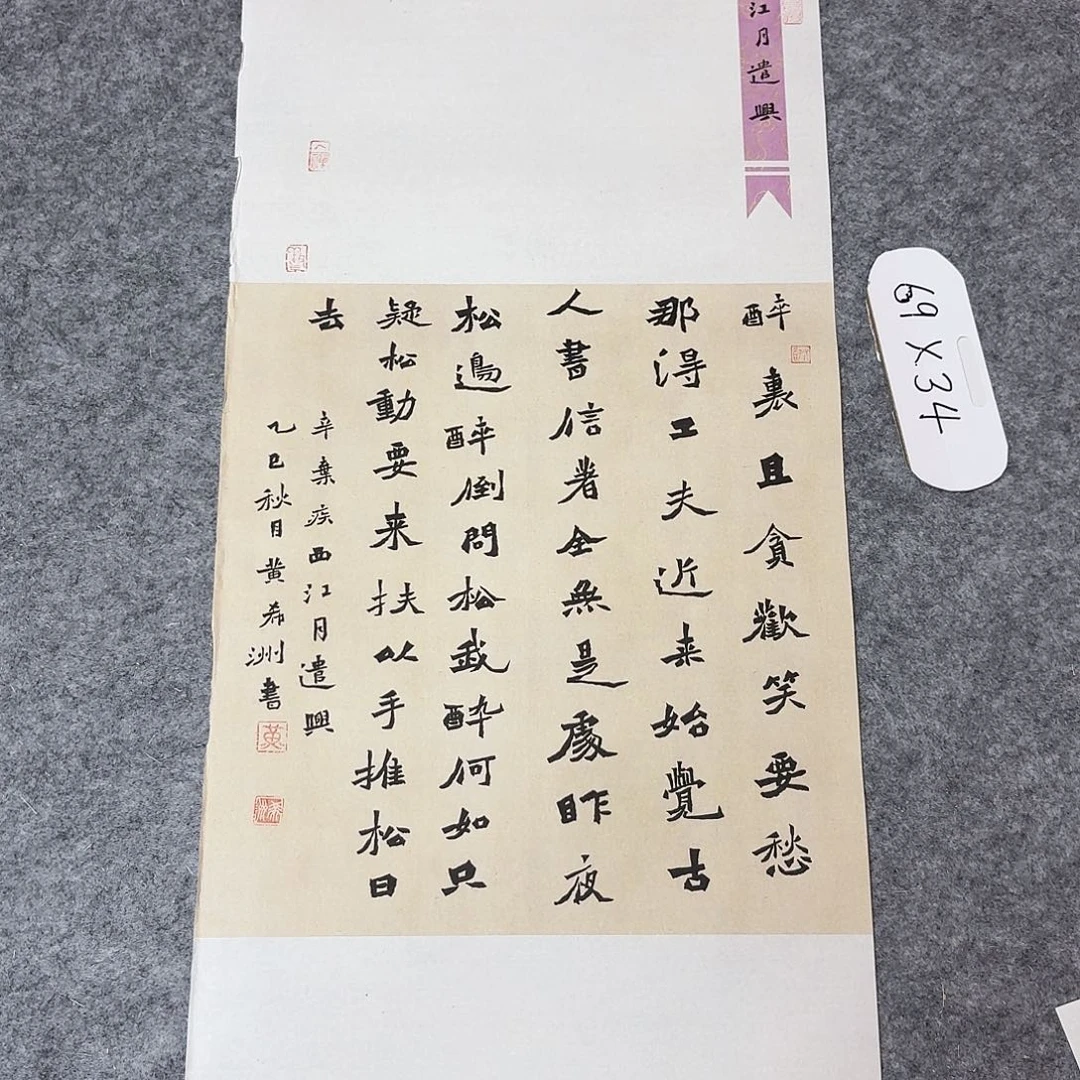 江月遣興
醉裏且貪歡笑要愁
那得工夫近来始覺古
人書信著全無是處昨夜
松邊醉倒問松我醉何如只
疑松動要来扶以手推松曰
去
辛棄疾西江月遣興
乙巳秋月黄希洲書
黄
69X34